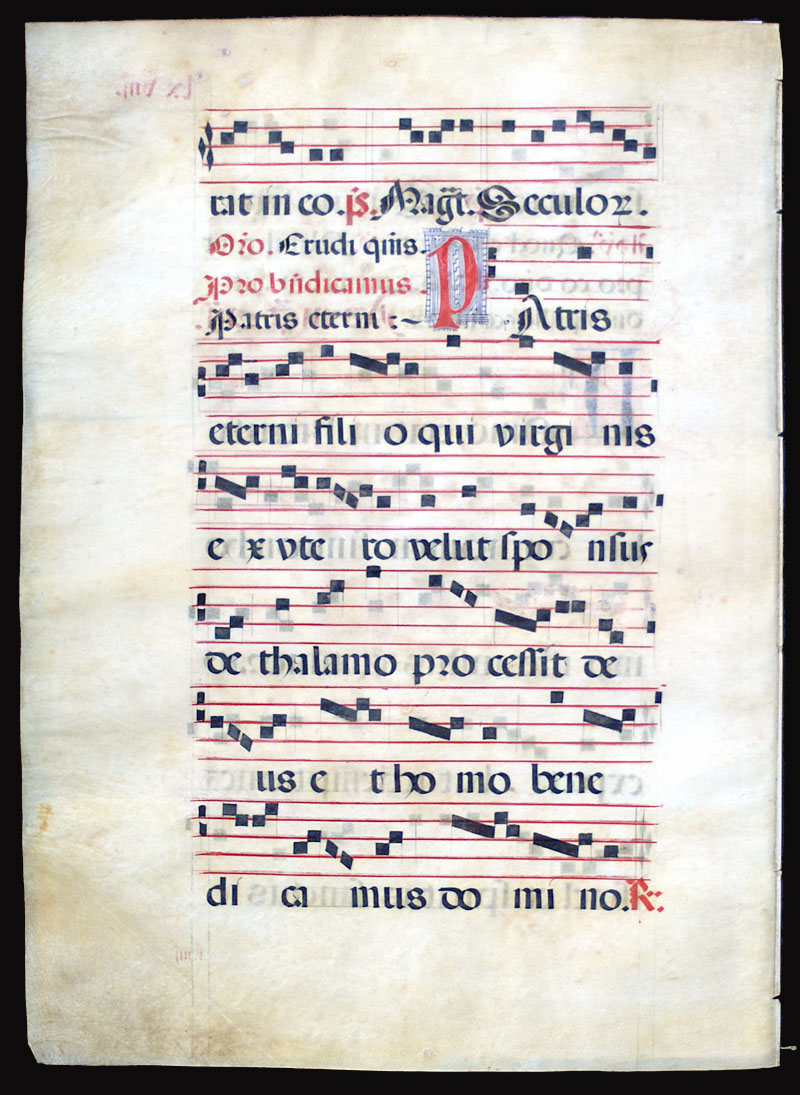 tat in eo. ps. Magt. Seculor.
Oro. Erudi qms.
Pro bndicamus.
Patris eterni :~ PAtris
eterni fili o qui virgi nis
e x vte ro velut spo nsus
de thalamo pro cessit de
us e t ho mo bene
di ca mus do mi no. R: